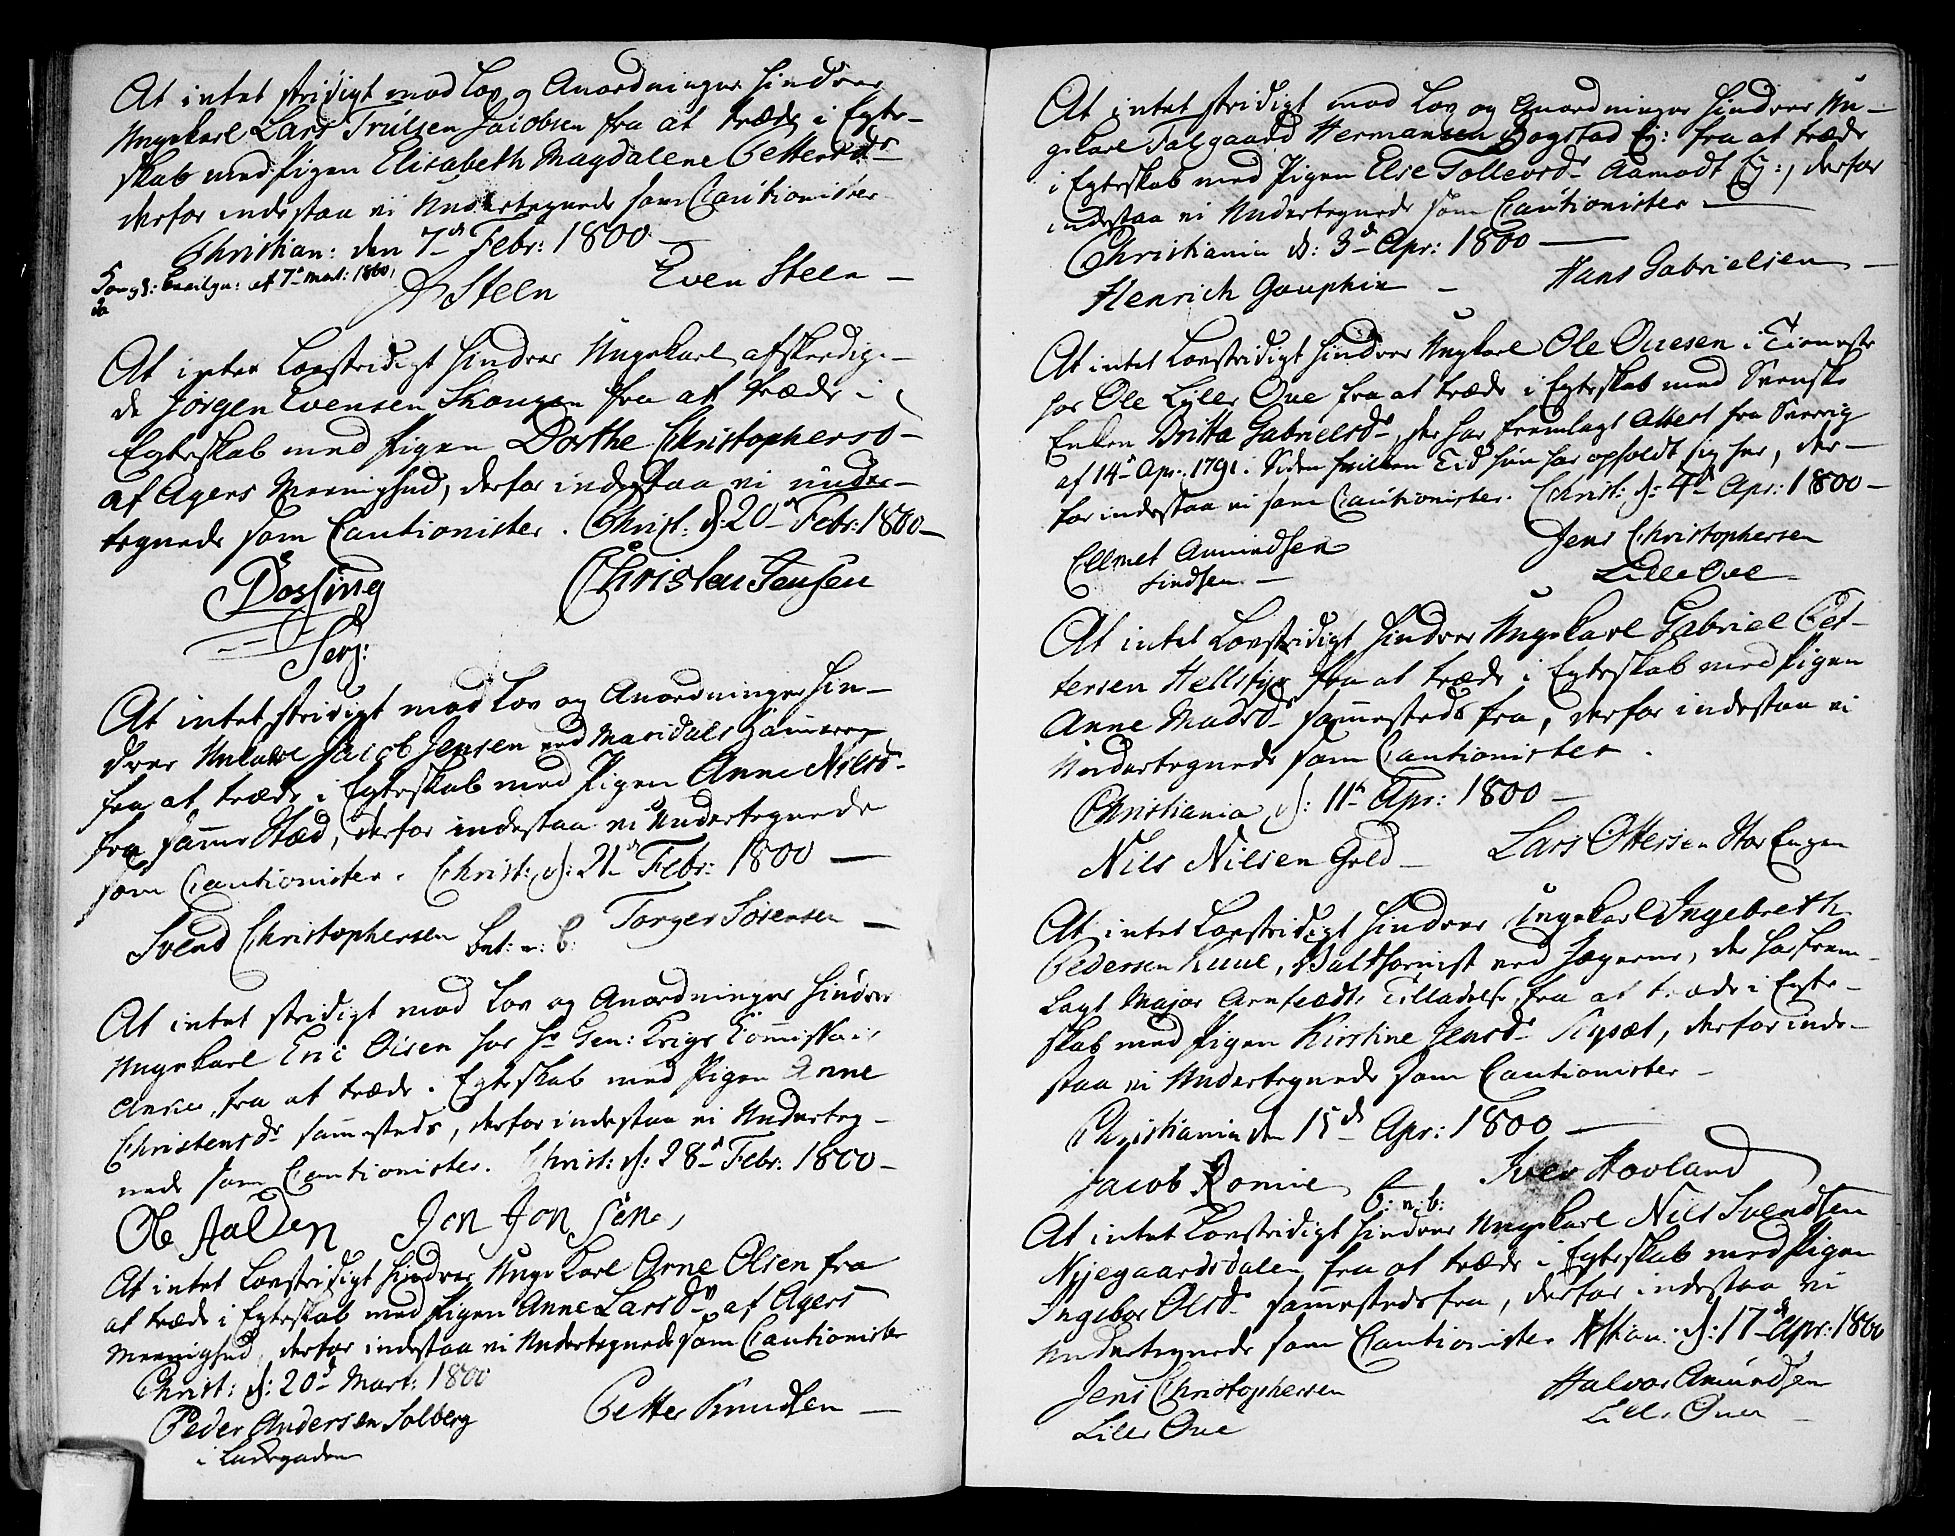 At intet stridigt mod Lov og Anordninger hindrer
Ungekarl Lars Trulsen Jacobsen fra at træde i Egte-
skab med Pigen Elisabeth Magdalene Pettersdr
derfor indestaa vi Undertegnede som Cautionister
Christian: den 7de Febr: 1800 —
Kongl: Bevilgn: af 7de Mart: 1800,
Steen Even Steen —
At intet Lovstridigt hindrer Ungekarl afskedige-
de Jørgen Evensen Skougen fra at træde i
Egteskab med Pigen Dorthe Christophersd-
af Agers Meenighed, derfor indestaa vi under-
tegnede som Cautionister. Christ: d: 20de Febr: 1800 —
Døsling Christen Jensen
Serg:
At intet stridigt mod Lov og Anordninger hin-
drer Unkarl Jacob Jensen ved Maridals Hammeren
fra at træde i Egteskab med Pigen Anne Nilsd-
fra samme Stæd, derfor indestaa vi Undertegnede
som Cautionister. Christ: d: 21de Febr: 1800 —
Svend Christophersen Bet: v: b: Torger Sørensen —
At intet stridigt mod Lov og Anordninger hindrer
Ungekarl Eric Olsen hos Hr Gen: Krigs Commissair
Anker, fra at træde i Egteskab med Pigen Anne
Christensdr sammesteds, derfor indestaa vi Underteg-
nede som Cautionister. Christ: d: 28de Febr: 1800 —
Ole Jon Jonsene
At intet Lovstridigt hindrer Ungekarl Arne Olsen fra
at træde i Egteskab med Pigen Anne Larsdr af Agers
Meenighed, derfor indestaa vi Undertegnede som Cautionister
Christ: d: 20de Mart: 1800
Peder Andersen Solberg Petter Knudsen —
i Ladegaden
At intet stridigt mod Lov og Anordninger hindrer Un-
gekarl Talgaard Hermansen Bogstad Ej: fra at træde
i Egteskab med Pigen Else Tollevsdr Aamodt Ej:, derfor
indestaa vi Undertegnede som Cautionister —
Christiania d: 3de Apr: 1800 —
Henrich Gauphin — Hans Gabrielsen —
At intet Lovstridigt hindrer Ungkarl Ole Ovesen i Tieneste
hos Ole Lille Ove fra at træde i Egteskab med Svenske
Enken Britta Gabrielsdr, der har fremlagt Attest fra Sverrig
af 14de Apr: 1791. Siden hvilken Tid hun har opholdt sig her, der-
for indestaa vi som Cautionister. Christ: d: 4de Apr: 1800 —
Ellmet Amundsen Jens Christophersen
Lindsen — Lille Ove —
At intet Lovstridigt hindrer Ungekarl Gabriel Pet-
tersen Hellsfyr fra at træde i Egteskab med Pigen
Anne Madsdr sammesteds fra, derfor indestaa vi
Undertegnede som Cautionister.
Christiania d: 11te Apr: 1800 —
Nils Nilsen — Lars Ottersen Stor Engen
At intet Lovstridigt hindrer Ungekarl Ingebreth
Pedersen Ruue, Waldhornist ved Jægerne, der har frem-
lagt Major Arnfeldts Tilladelse, fra at træde i Egte-
skab med Pigen Kirstine Jensdr Rysæt, derfor inde-
staa vi Undertegnede som Cautionister —
Christiania den 15de Apr: 1800 —
Jacob Iver Hovland
b: v: b:
At intet Lovstridigt hindrer Ungekarl Nils Svendsen
Nyegaardsdalen fra at træde i Egteskab med Pigen
Ingebor Olsdr sammesteds fra, derfor indestaa vi
Undertegnede som Cautionister Xstian: d: 17de Apr: 1800
Jens Christophersen Halvor Amundsen
Lille Ove Lille Ove —